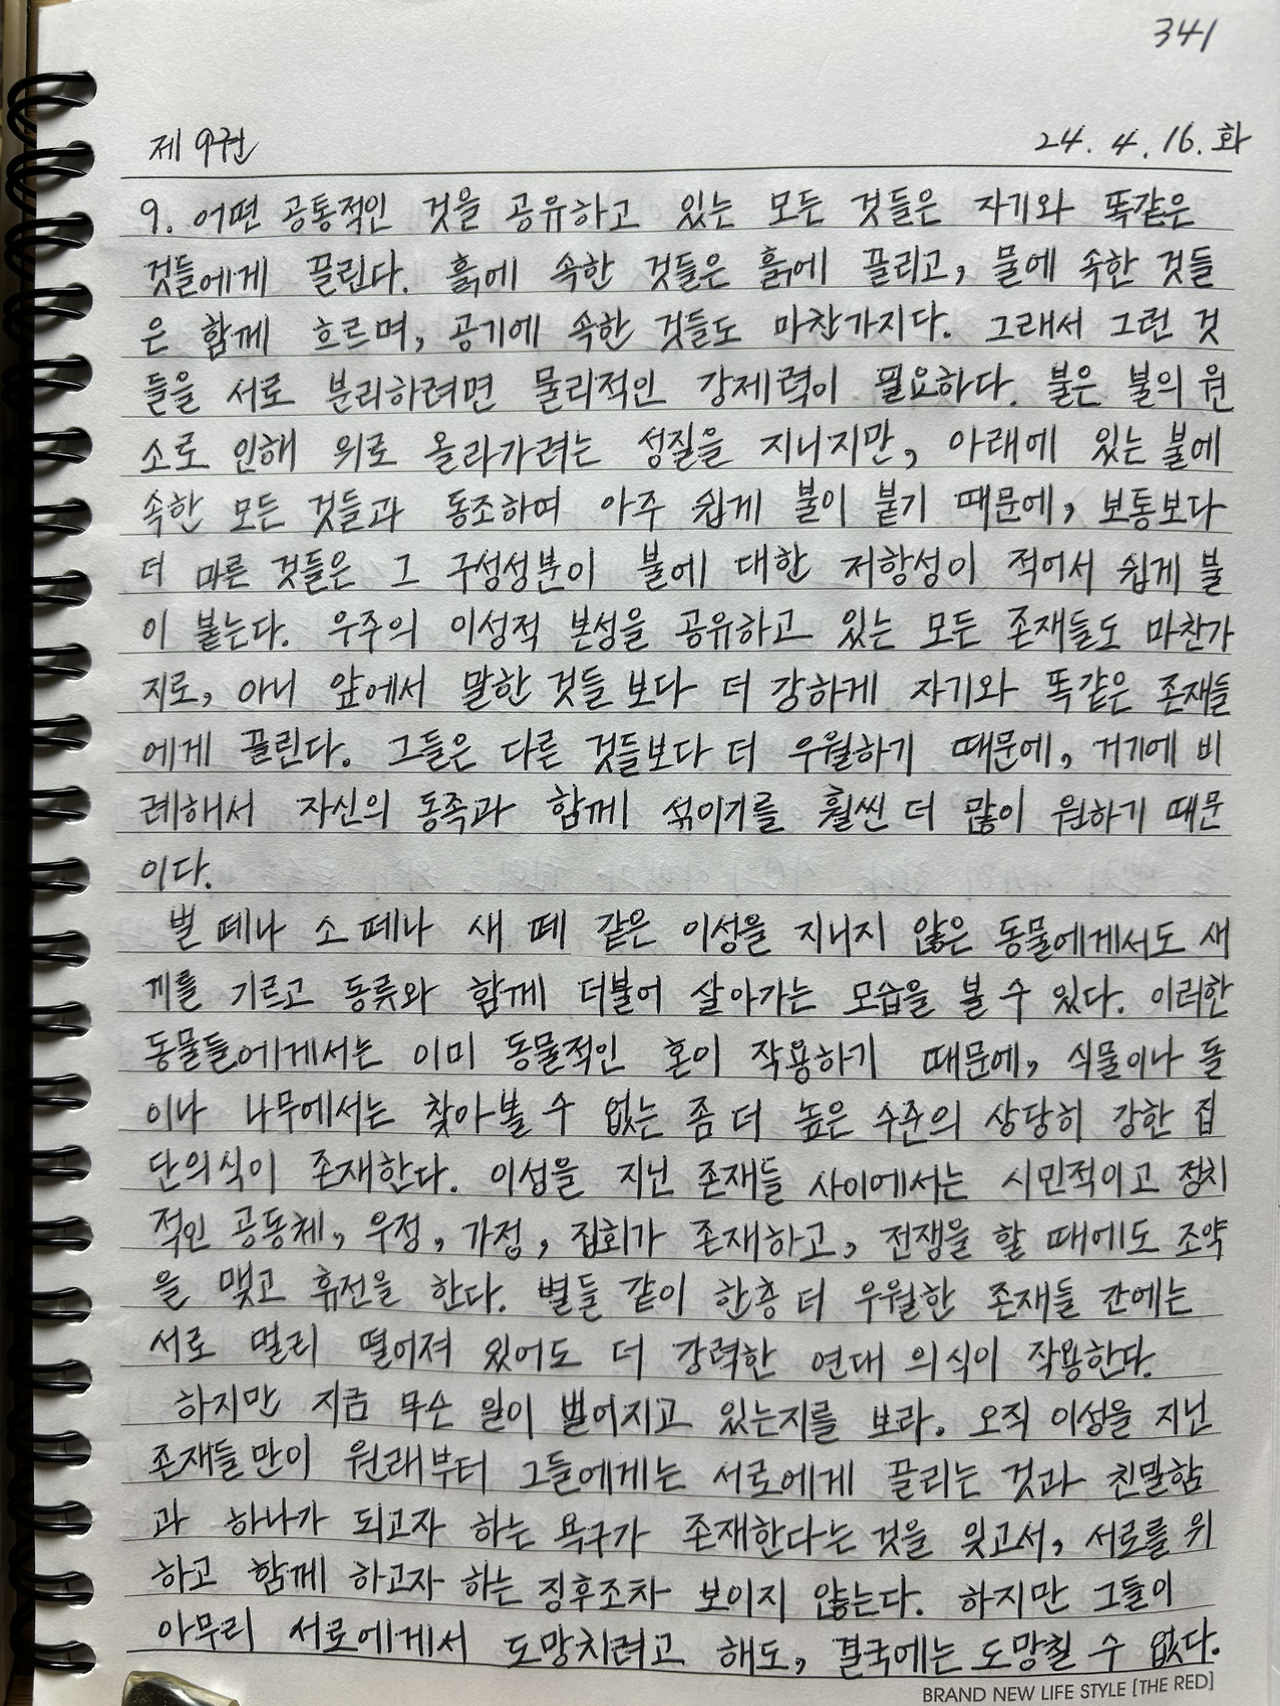 341
제 9권 24. 4. 16. 화
9. 어떤 공통적인 것을 공유하고 있는 모든 것들은 자기와 똑같은
것들에게 끌린다. 흙에 속한 것들은 흙에 끌리고, 물에 속한 것들
은 함께 흐르며, 공기에 속한 것들도 마찬가지다. 그래서 그런 것
들을 서로 분리하려면 물리적인 강제력이 필요하다. 불은 불의 원
소로 인해 위로 올라가려는 성질을 지니지만, 아래에 있는 불에
속한 모든 것들과 동조하여 아주 쉽게 불이 붙기 때문에, 보통보다
더 마른 것들은 그 구성성분이 불에 대한 저항성이 적어서 쉽게 불
이 붙는다. 우주의 이성적 본성을 공유하고 있는 모든 존재들도 마찬가
지로, 아니 앞에서 말한 것들 보다 더 강하게 자기와 똑같은 존재들
에게 끌린다. 그들은 다른 것들보다 더 우월하기 때문에, 거기에 비
례해서 자신의 동족과 함께 섞이기를 훨씬 더 많이 원하기 때문
이다.
벌 떼나 소 떼나 새 떼 같은 이성을 지니지 않은 동물에게서도 새
끼를 기르고 동류와 함께 더불어 살아가는 모습을 볼 수 있다. 이러한
동물들에게서는 이미 동물적인 혼이 작용하기 때문에, 식물이나 돌
이나 나무에서는 찾아볼 수 없는 좀 더 높은 수준의 상당히 강한 집
단의식이 존재한다. 이성을 지닌 존재들 사이에서는 시민적이고 정치
적인 공동체, 우정, 가정, 집회가 존재하고, 전쟁을 할 때에도 조약
을 맺고 휴전을 한다. 별들 같이 한층 더 우월한 존재들 간에는
서로 멀리 떨어져 있어도 더 강력한 연대 의식이 작용한다.
하지만 지금 무슨 일이 벌어지고 있는지를 보라. 오직 이성을 지닌
존재들만이 원래부터 그들에게는 서로에게 끌리는 것과 친밀함
과 하나가 되고자 하는 욕구가 존재한다는 것을 잊고서, 서로를 위
하고 함께 하고자 하는 징후조차 보이지 않는다. 하지만 그들이
아무리 서로에게서 도망치려고 해도, 결국에는 도망칠 수 없다.
BRAND NEW LIFE STYLE [THE RED]